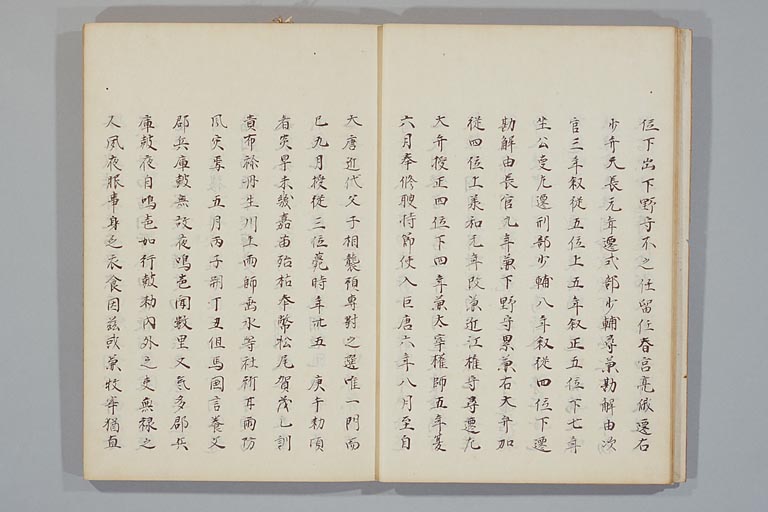 位下出下野守不之任留任春宮亮俄遷右
少弁天長元年遷式部少輔尋兼勘解由次
官三年叙従五位上五年叙正五位下七年
坐公受左遷刑部少輔八年叙従四位下遷
勘解由長官九年兼下野守累兼右大弁加
従四位上承和元年改兼近江権守尋遷左
大弁授正四位下四年兼太宰権帥五年
六月奉修聘持節使入巨唐六年八月至自
大唐近代父子相襲預専対之選唯一門而
已九月授従三位薨時年卌五 庚午勅頃
者炎旱未幾嘉苗殆枯奉幣松尾賀茂乙訓
貴布祢丹生川上雨師垂水等社祈甘雨防
風災焉 五月丙子朔丁丑但馬国言養父
郡兵庫鼓無故夜鳴声聞数里又気多郡兵
庫鼓夜自鳴声如行鼓勅内外之吏無禄之
人夙夜服事身乏衣食因茲或兼牧宰猶直